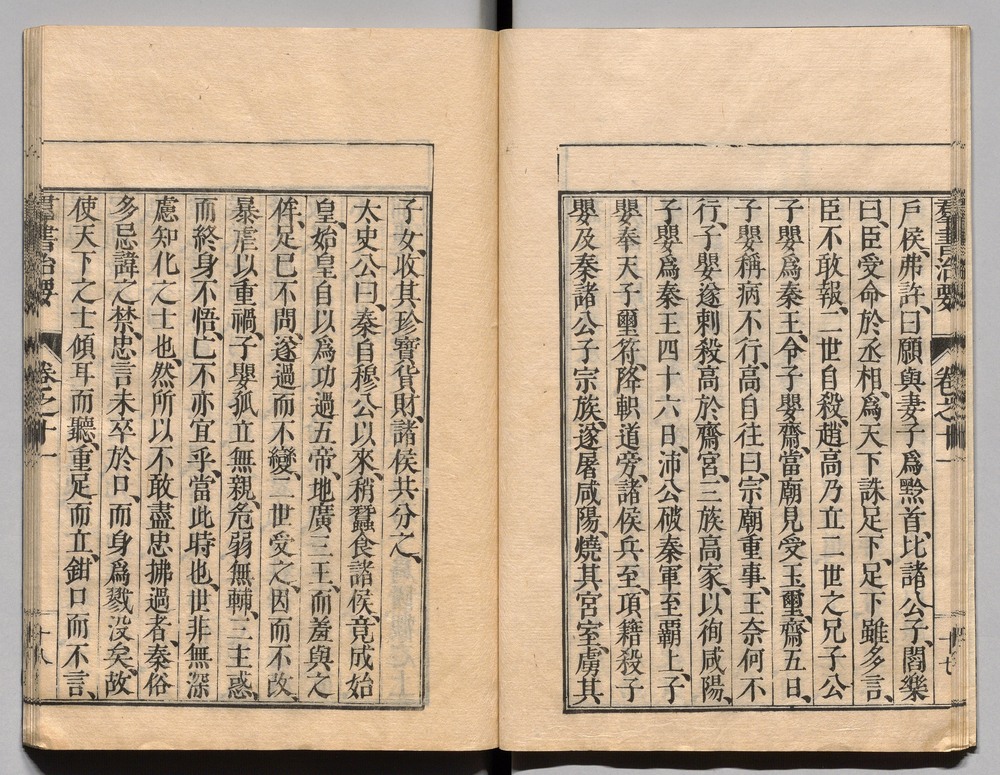 羣書治要 卷之十一 十七
戶侯、弗許、曰、願與妻子爲黔首、比諸公子、閻樂
曰、臣受命於丞相、爲天下誅足下、足下雖多言、
臣不敢報、二世自殺、趙高乃立二世之兄子公
子嬰爲秦王、令子嬰齋、當廟見受玉璽、齋五日、
子嬰稱病不行、高自往曰、宗廟重事、王奈何不
行、子嬰遂刺殺高於齋宮、三族高家以徇咸陽、
子嬰爲秦王四十六日、沛公破秦軍至霸上、子
嬰奉天子璽符、降軹道旁、諸侯兵至、項籍殺子
嬰及秦諸公子宗族、遂屠咸陽、燒其宮室、虜其
子女、收其珍寶貨財、諸侯共分之、
太史公曰、秦自穆公以來、稍蠶食諸侯、竟成始
皇、始皇自以爲功過五帝、地廣三王、而羞與之
侔、足已不問、遂過而不變、二世受之、因而不改、
暴虐以重禍、子嬰孤立無親、危弱無輔、三主惑、
而終身不悟、亡不亦宜乎、當此時也、世非無深
慮知化之士也、然所以不敢盡忠拂過者、秦俗
多忌諱之禁、忠言未卒於口、而身爲戮沒矣、故
使天下之士傾耳而聽、重足而立、鉗口而不言、
羣書治要 卷之十一 十八